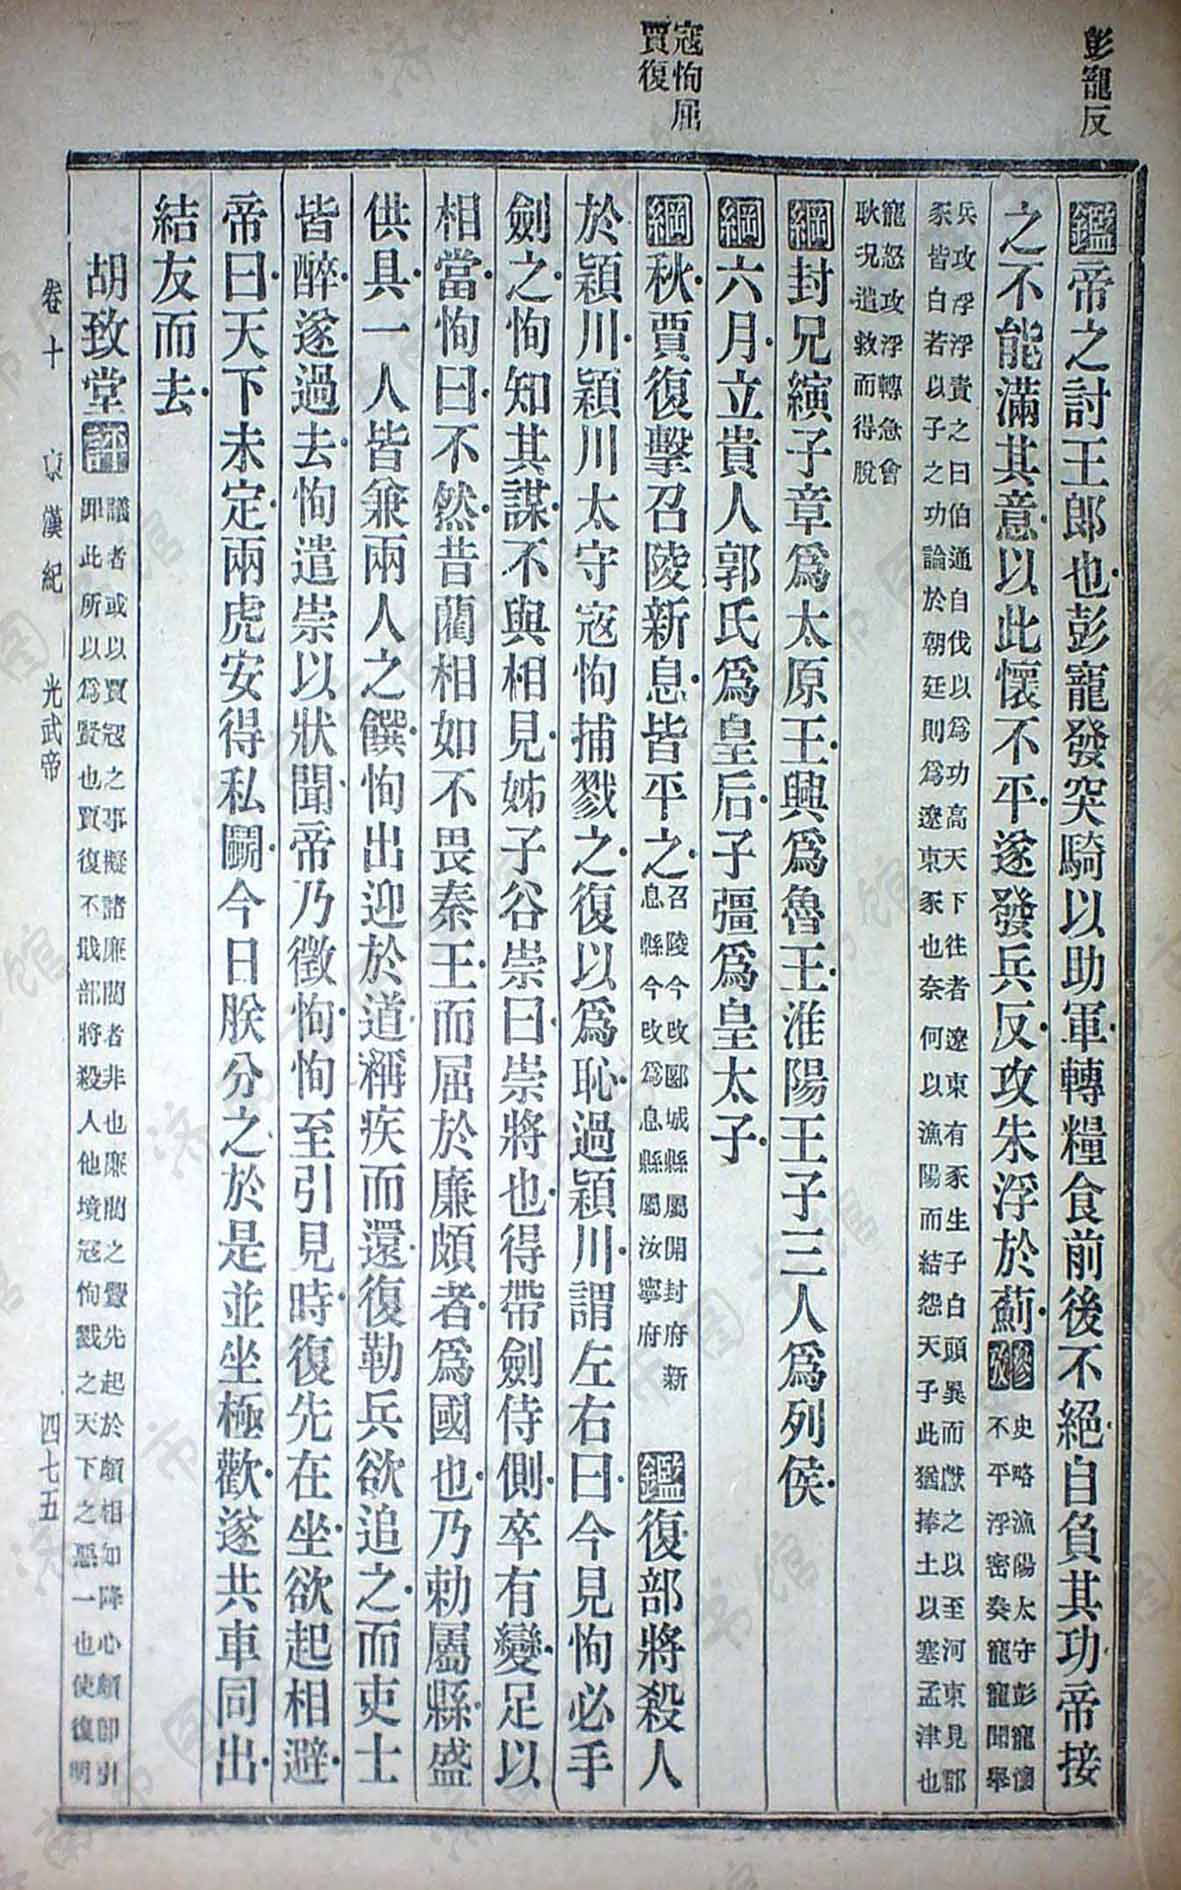 彭寵反
寇恂屈
賈復
鑑帝之討王郎也彭寵發突騎以助軍轉糧食前後不絕自負其功帝接
之不能滿其意以此懷不平遂發兵反攻朱浮於薊
史略漁陽太守彭寵懷
不平浮密奏寵寵聞舉
兵攻浮浮責之曰伯通自伐以爲功高天下往者遼東有豕生子白頭異而獻之以至河東見郡
豕皆白若以子之功論於朝廷則爲遼東豕也奈何以漁陽而結怨天子此猶捧土以塞孟津也
寵怒攻浮轉急會
耿況遣救而得脫
綱封兄縯子章爲太原王興爲魯王淮陽王子三人爲列侯
綱六月立貴人郭氏爲皇后子彊爲皇太子
綱秋賈復擊召陵新息皆平之
召陵今改郾城縣屬開封府新
息縣今改爲息縣屬汝寧府
鑑復部將殺人
於潁川潁川太守寇恂捕戮之復以爲恥過潁川謂左右曰今見恂必手
劍之恂知其謀不與相見姊子谷崇曰崇將也得帶劍侍側卒有變足以
相當恂曰不然昔藺相如不畏秦王而屈於廉頗者爲國也乃勅屬縣盛
供具一人皆兼兩人之饌恂出迎於道稱疾而還復勒兵欲追之而吏士
皆醉遂過去恂遣崇以狀聞帝乃徵恂恂至引見時復先在坐欲起相避
帝曰天下未定兩虎安得私鬭今日朕分之於是並坐極歡遂共車同出
結友而去
胡致堂評
議者或以賈寇之事擬諸廉藺者非也廉藺之釁先起於頗相如降心頗卽引
卽此所以爲賢也賈復不戢部將殺人他境寇恂戮之天下之惡一也使復明
卷十 東漢紀 光武帝 四七五